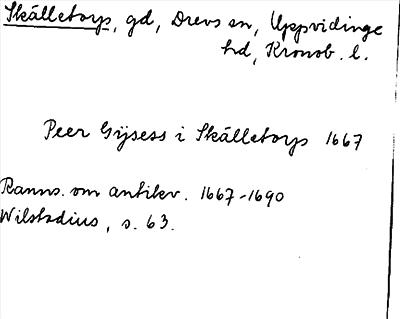 Skälletorp, gd, Drevs sn, Uppvidinge
hd, Kronob. l.
Peer Gijsess i Skälletorps 1667
Ranns. om antikv. 1667-1690
Wilstadius, s. 63.